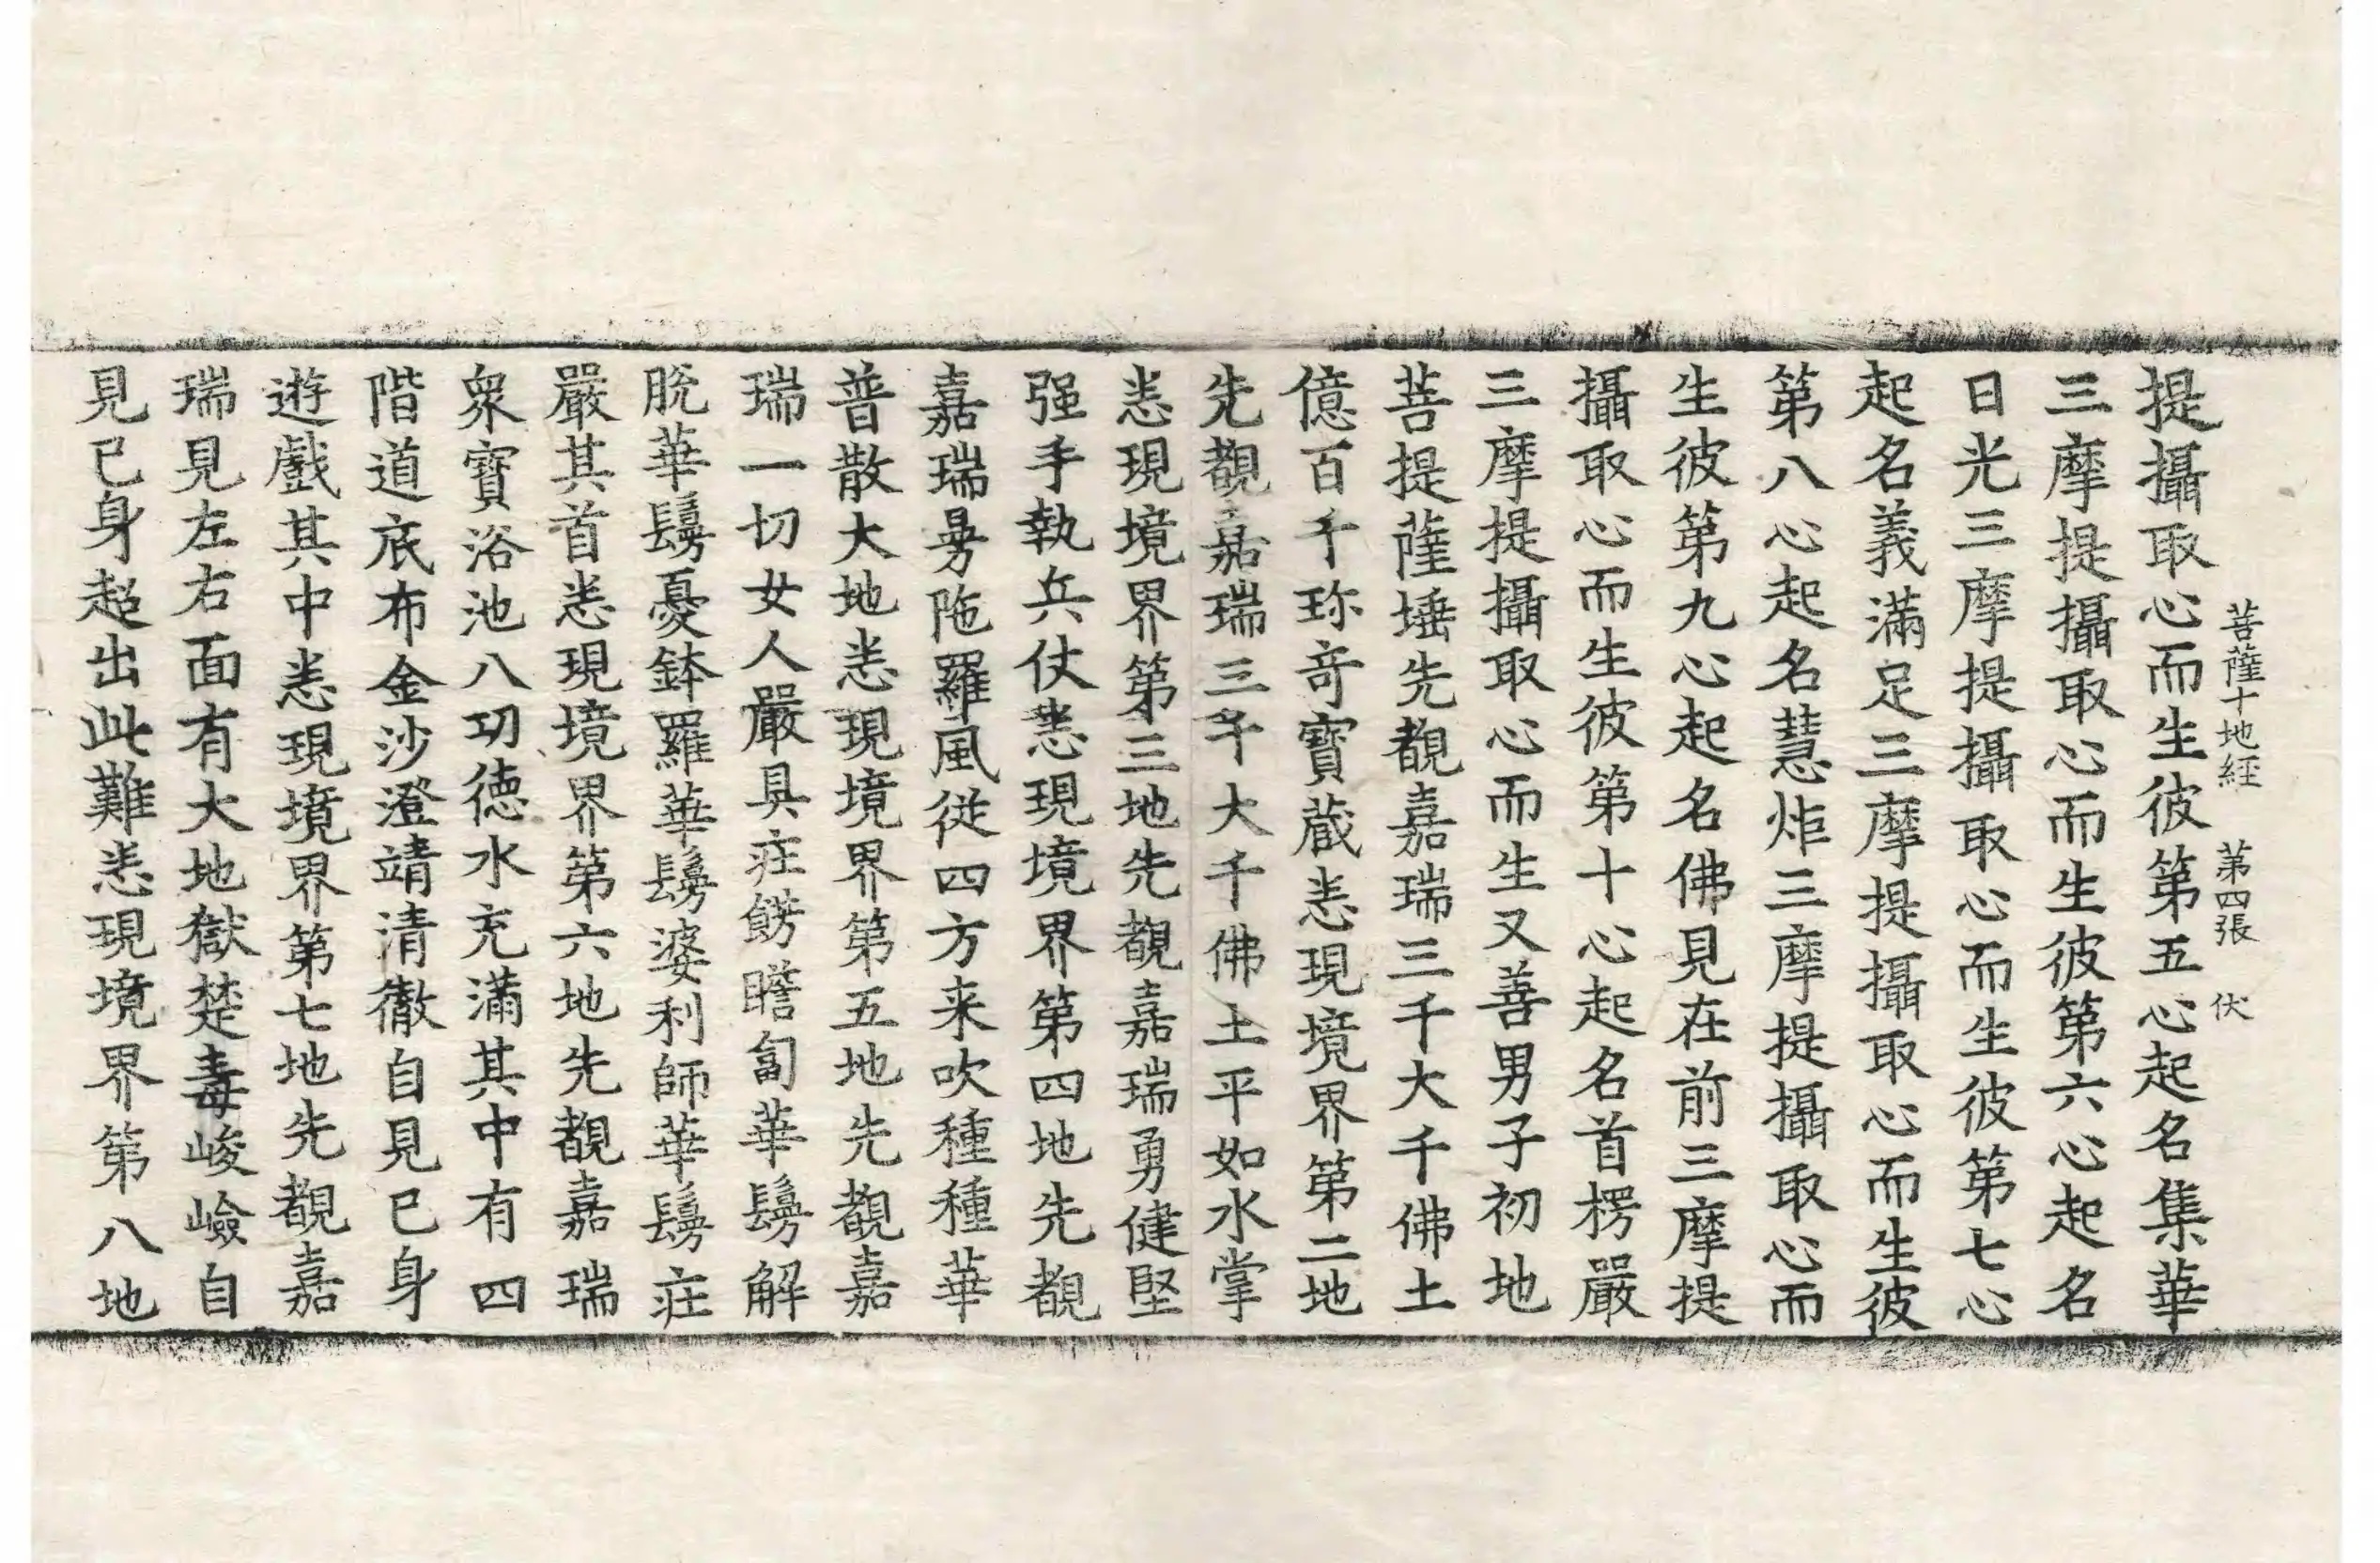 菩薩十地経 第四張 伏
提攝取心而生彼第五心起名集華
三摩提攝取心而生彼第六心起名
日光三摩提攝取心而生彼第七心
起名義滿足三摩提攝取心而生彼
第八心起名慧炬三摩提攝取心而
生彼第九心起名佛見在前三摩提
攝取心而生彼第十心起名首楞嚴
三摩提攝取心而生又善男子初地
菩提薩埵先覩嘉瑞三千大千佛土
億百千珎竒寶蔵悉現境界第二地
先覩嘉瑞三千大千佛土平如水掌
悉現境界第三地先覩嘉瑞勇健堅
强手執兵仗悉現境界第四地先覩
嘉瑞㫄陁羅風從四方来吹種種華
普散大地悉現境界第五地先覩嘉
瑞一切女人嚴具莊餝瞻匐華鬘解
脫華鬘憂鉢羅華鬘婆利師華鬘莊
嚴其首悉現境界第六地先覩嘉瑞
衆寶浴池八功德水充滿其中有四
階道底布金沙澄靖清徹自見已身
遊戲其中悉現境界第七地先覩嘉
瑞見左右面有大地獄楚毒峻嶮自
見已身超出此難悉現境界第八地